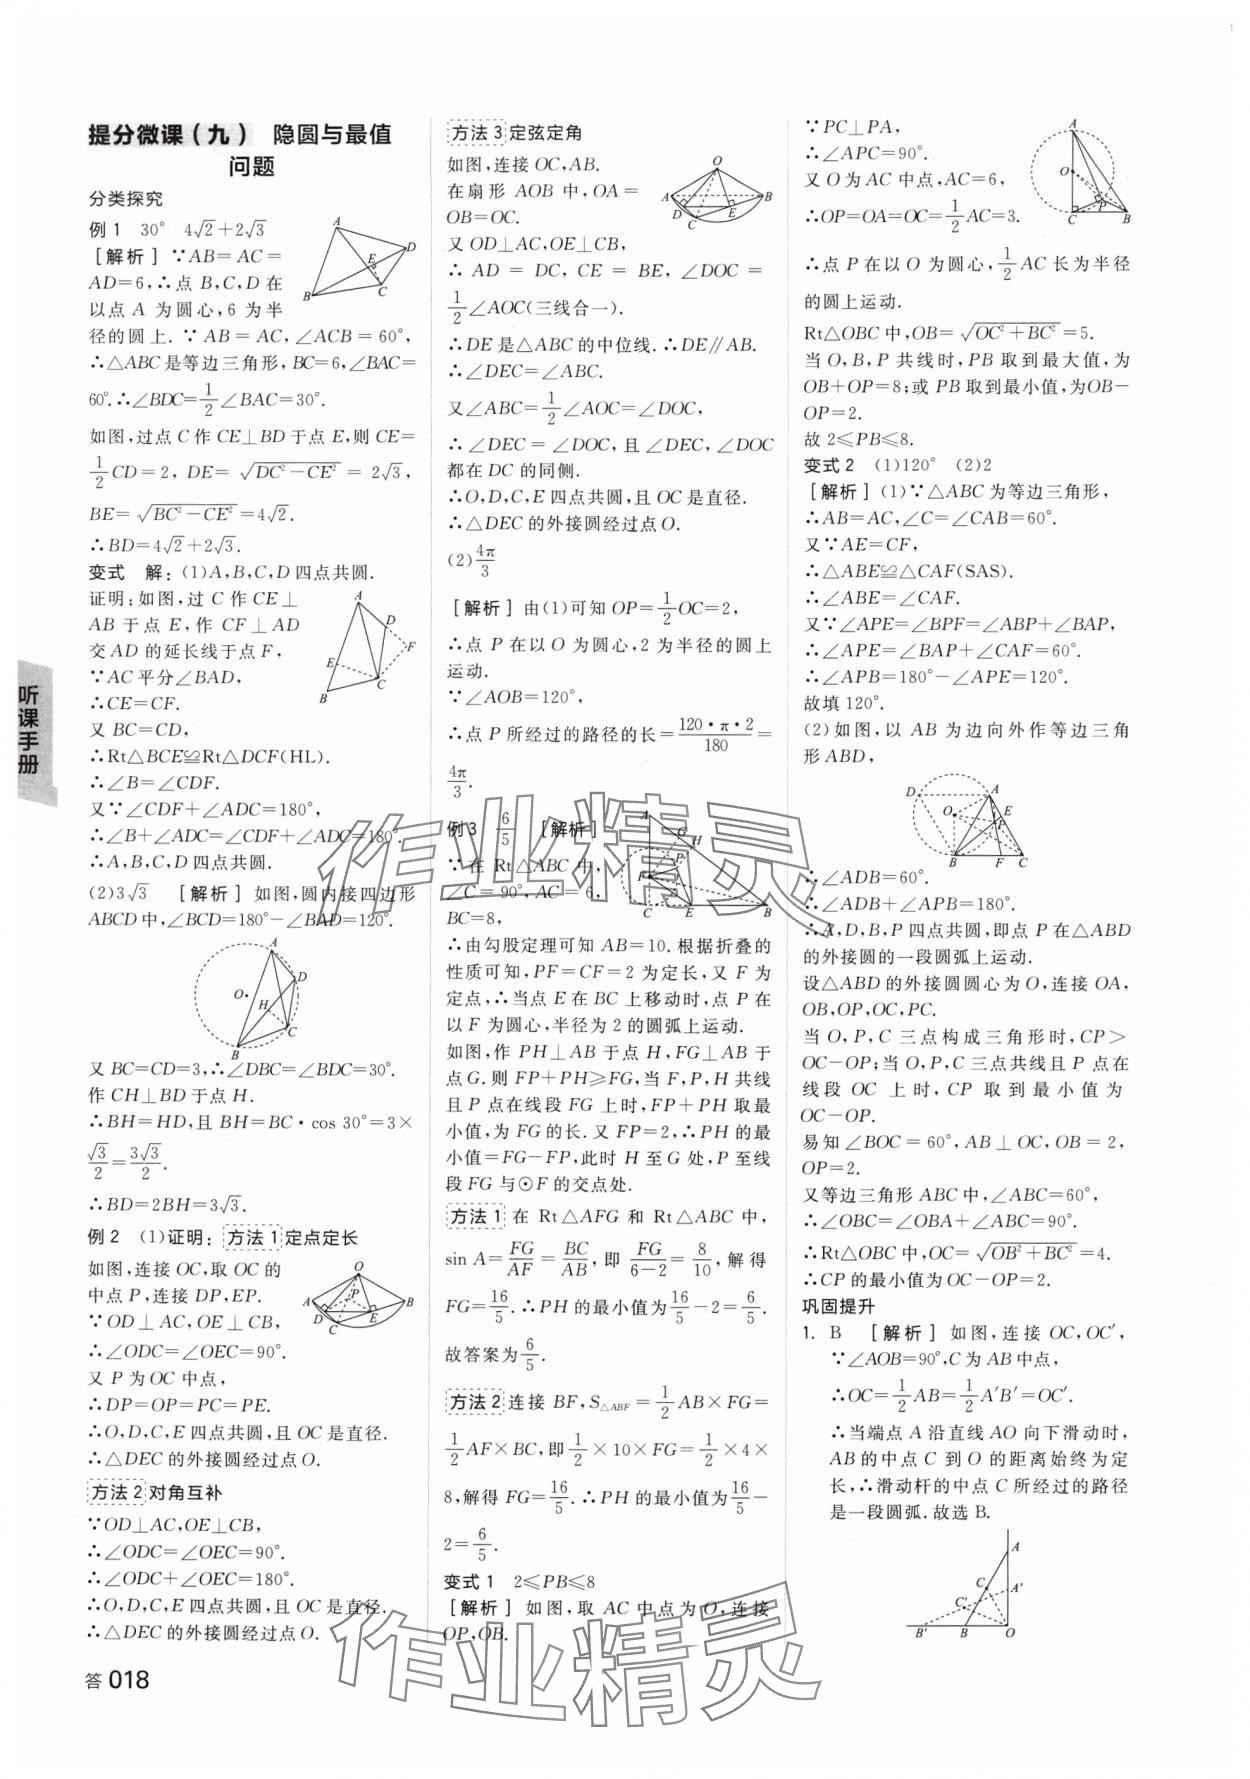 提分微课(九) 隐圆与最值
问题
分类探究
例1 30° 4√2+2√3
[解析] ∵AB=AC=
AD=6,∴点 B,C,D 在
以点 A 为圆心,6 为半
径的圆上.∵AB=AC,∠ACB=60°,
∴△ABC是等边三角形,BC=6,∠BAC=
60°.∴∠BDC=1/2∠BAC=30°.
如图,过点 C 作 CE⊥BD 于点 E,则 CE=
1/2 CD=2, DE=√(DC²-CE²)=2√3,
BE=√(BC²-CE²)=4√2.
∴BD=4√2+2√3.
变式 解:(1)A,B,C,D四点共圆.
证明:如图,过 C 作 CE⊥
AB 于点 E,作 CF⊥AD
交 AD 的延长线于点 F,
∵AC平分∠BAD,
∴CE=CF.
又 BC=CD,
∴Rt△BCE≌Rt△DCF(HL).
∴∠B=∠CDF.
又∵∠CDF+∠ADC=180°,
∴∠B+∠ADC=∠CDF+∠ADC=180°.
∴A,B,C,D四点共圆.
(2)3√3 [解析] 如图,圆内接四边形
ABCD中,∠BCD=180°-∠BAD=120°.
又 BC=CD=3,∴∠DBC=∠BDC=30°.
作CH⊥BD于点 H.
∴BH=HD,且 BH=BC·cos 30°=3×
√3/2=3√3/2.
∴BD=2BH=3√3.
例2 (1)证明: 方法1 定点定长
如图,连接 OC,取 OC 的
中点 P,连接 DP,EP.
∵OD⊥AC,OE⊥CB,
∴∠ODC=∠OEC=90°.
又 P为OC中点,
∴DP=OP=PC=PE.
∴O,D,C,E四点共圆,且OC是直径.
∴△DEC的外接圆经过点O.
方法2 对角互补
∵OD⊥AC,OE⊥CB,
∴∠ODC=∠OEC=90°.
∴∠ODC+∠OEC=180°.
∴O,D,C,E四点共圆,且OC是直径.
∴△DEC的外接圆经过点O.
方法3 定弦定角
如图,连接OC,AB.
在扇形 AOB 中,OA=
OB=OC.
又OD⊥AC,OE⊥CB,
∴AD=DC,CE=BE,∠DOC=
1/2∠AOC(三线合一).
∴DE是△ABC的中位线.∴DE∥AB.
∴∠DEC=∠ABC.
又∠ABC=1/2∠AOC=∠DOC,
∴∠DEC=∠DOC,且∠DEC,∠DOC
都在DC的同侧.
∴O,D,C,E四点共圆,且OC是直径.
∴△DEC的外接圆经过点O.
(2)4π/3
[解析] 由(1)可知OP=1/2OC=2,
∴点 P 在以 O 为圆心,2 为半径的圆上
运动.
∵∠AOB=120°,
∴点 P 所经过的路径的长=120·π·2/180=
4π/3.
例3 6/5 [解析]
∵在 Rt△ABC 中,
∠C=90°,AC=6,
BC=8,
∴由勾股定理可知AB=10.根据折叠的
性质可知,PF=CF=2为定长,又F为
定点,∴当点 E 在 BC 上移动时,点 P 在
以F为圆心,半径为2的圆弧上运动.
如图,作 PH⊥AB 于点 H,FG⊥AB 于
点G.则FP+PH≥FG,当F,P,H共线
且P点在线段 FG 上时,FP+PH取最
小值,为FG的长.又FP=2,∴PH的最
小值=FG-FP,此时 H 至 G 处,P至线
段FG与⊙F的交点处.
方法1 在 Rt△AFG 和 Rt△ABC 中,
sin A=FG/AF=BC/AB,即 FG/(6-2)=8/10,解得
FG=16/5.∴PH的最小值为16/5-2=6/5.
故答案为6/5.
方法2 连接 BF,S△ABF=1/2AB×FG=
1/2AF×BC,即1/2×10×FG=1/2×4×
8,解得 FG=16/5.∴PH的最小值为16/5-
2=6/5.
变式1 2≤PB≤8
[解析] 如图,取 AC 中点为O,连接
OP,OB.
∵PC⊥PA,
∴∠APC=90°.
又O为AC中点,AC=6,
∴OP=OA=OC=1/2AC=3.
∴点 P 在以 O 为圆心,1/2AC 长为半径
的圆上运动.
Rt△OBC中,OB=√(OC²+BC²)=5.
当 O,B,P 共线时,PB 取到最大值,为
OB+OP=8;或PB取到最小值,为OB-
OP=2.
故 2≤PB≤8.
变式2 (1)120° (2)2
[解析] (1)∵△ABC为等边三角形,
∴AB=AC,∠C=∠CAB=60°.
又∵AE=CF,
∴△ABE≌△CAF(SAS).
∴∠ABE=∠CAF.
又∵∠APE=∠BPF=∠ABP+∠BAP,
∴∠APE=∠BAP+∠CAF=60°.
∴∠APB=180°-∠APE=120°.
故填120°.
(2)如图,以 AB 为边向外作等边三角
形ABD,
∴∠ADB=60°.
∴∠ADB+∠APB=180°.
∴A,D,B,P四点共圆,即点P在△ABD
的外接圆的一段圆弧上运动.
设△ABD的外接圆圆心为O,连接OA,
OB,OP,OC,PC.
当 O,P,C 三点构成三角形时,CP>
OC-OP;当O,P,C三点共线且P点在
线段 OC 上时,CP 取到最小值为
OC-OP.
易知∠BOC=60°,AB⊥OC,OB=2,
OP=2.
又等边三角形ABC中,∠ABC=60°,
∴∠OBC=∠OBA+∠ABC=90°.
∴Rt△OBC中,OC=√(OB²+BC²)=4.
∴CP的最小值为OC-OP=2.
巩固提升
1. B [解析] 如图,连接 OC,OC′,
∵∠AOB=90°,C为AB中点,
∴OC=1/2AB=1/2A′B′=OC′.
∴当端点 A 沿直线 AO 向下滑动时,
AB的中点 C 到 O 的距离始终为定
长,∴滑动杆的中点C所经过的路径
是一段圆弧.故选B.
听课手册
答 018
作业精灵
作业精灵